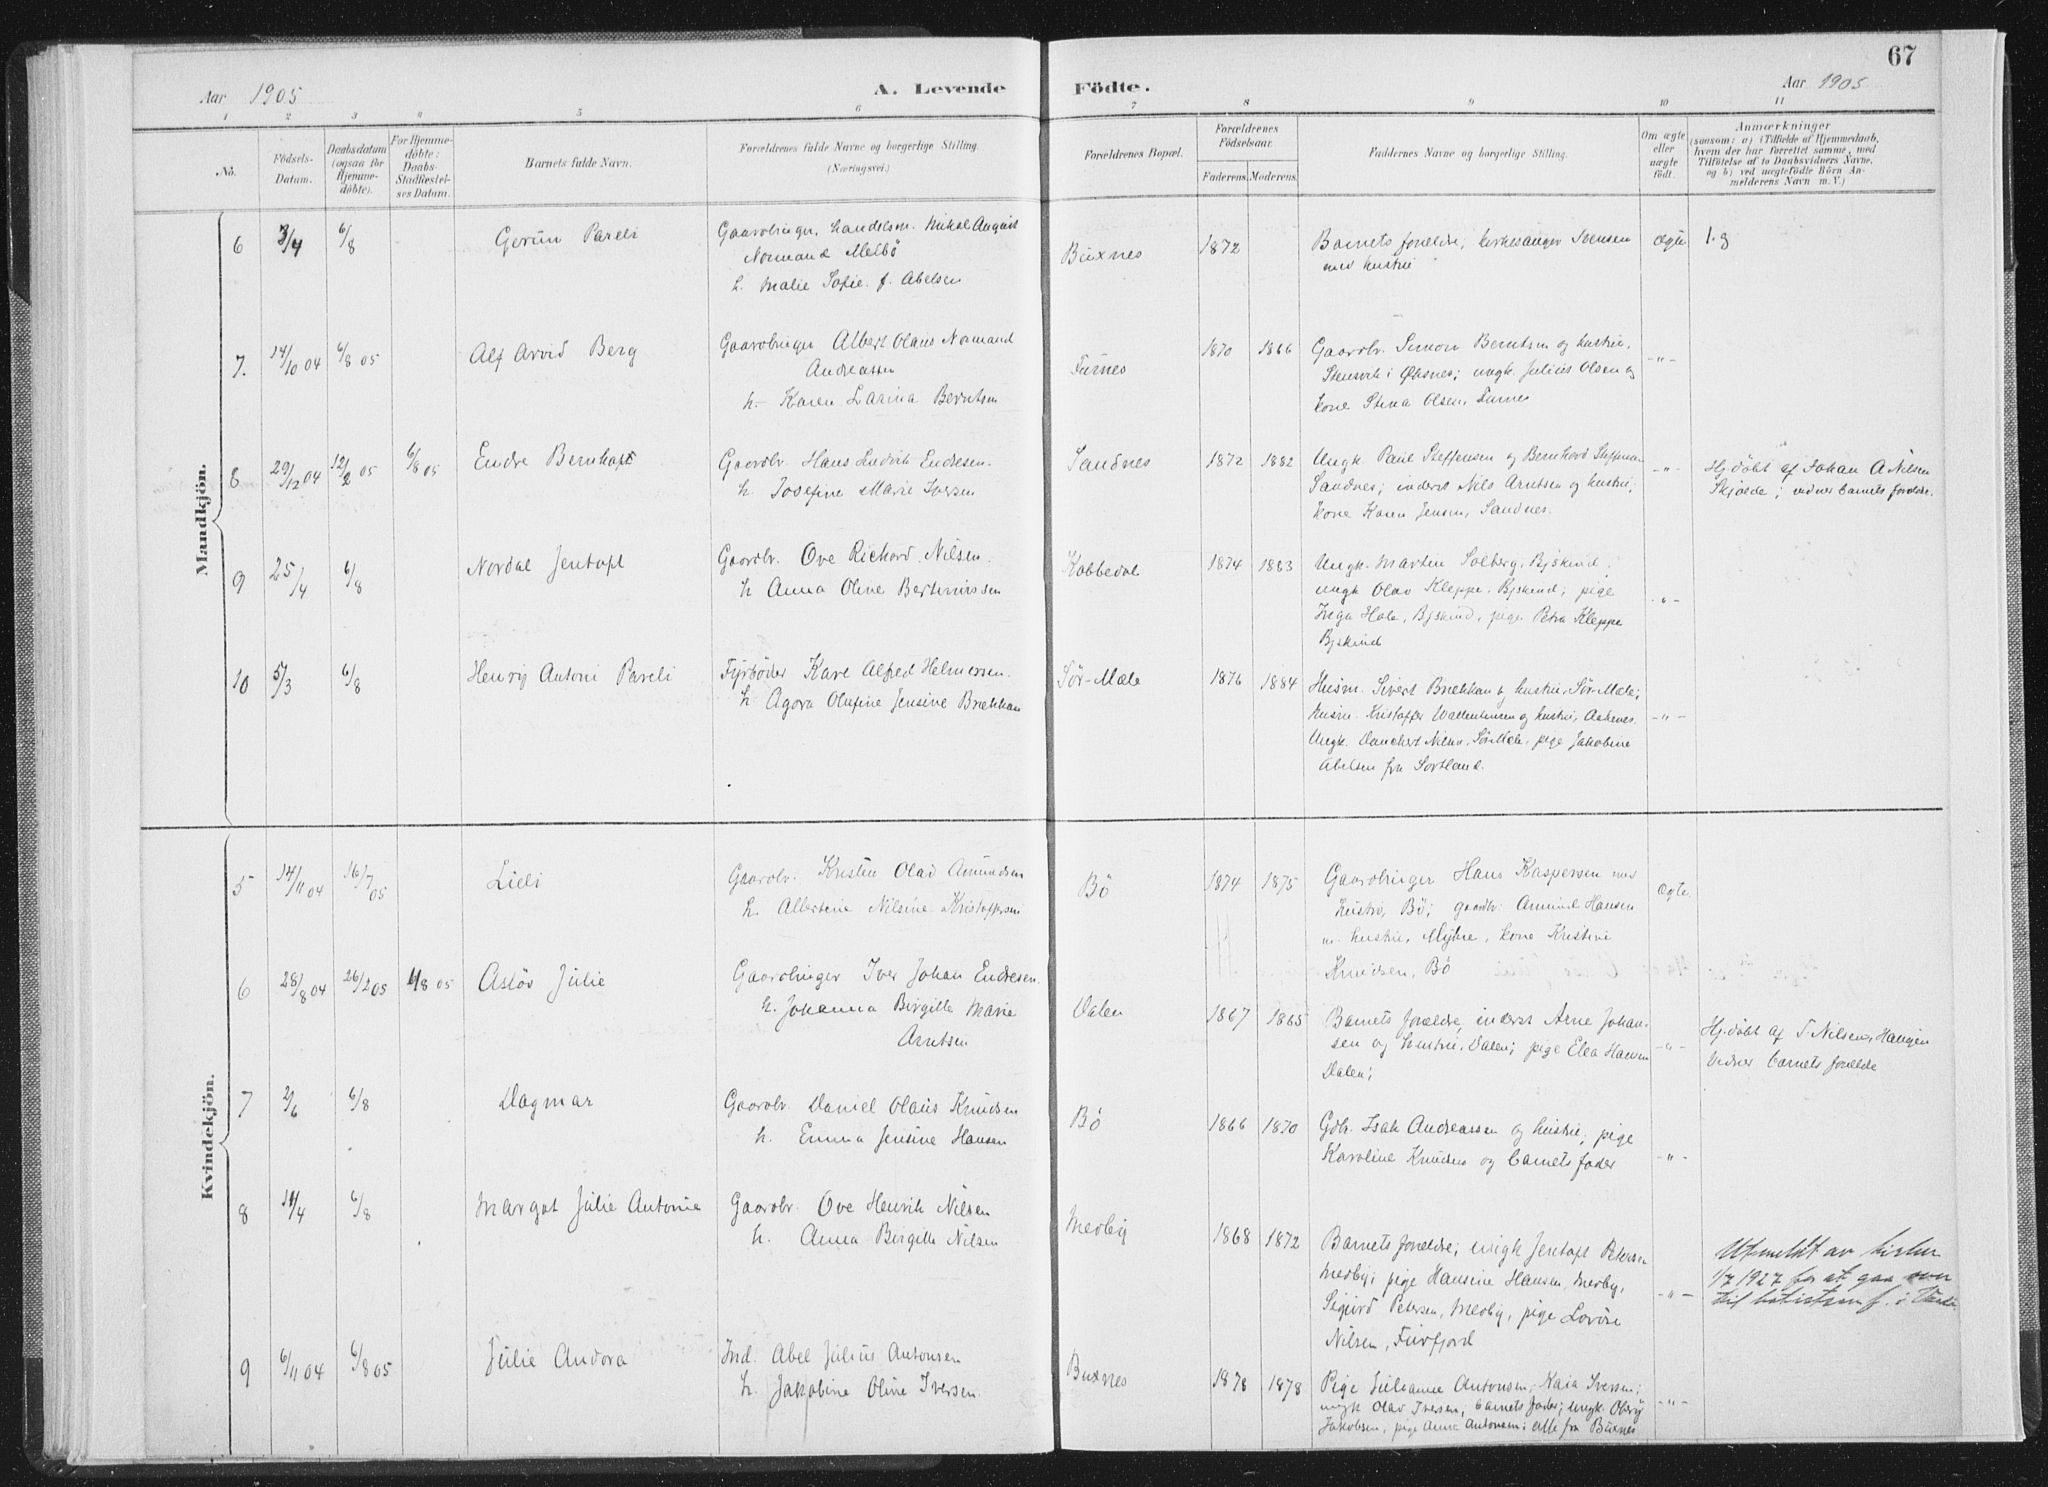 67
Aar 1905
A. Levende Födte.
Aar 1905
1 2 3 4 5 6 7 8 9 10 11
No.
Födsels-
Datum.
Daabsdatum
(ogsaa for
Hjemme-
döbte).
For Hjemme-
döbte:
Daabs-
Stadfæstel-
ses Datum.
Barnets fulde Navn.
Forældrenes fulde Navne og borgerlige Stilling.
(Næringsvei.)
Forældrenes Bopæl.
Forældrenes
Födselsaar.
Faderens. Moderens.
Faddernes Navne og borgerlige Stilling.
Om ægte
eller
uægte
födt.
Anmærkninger
(saasom: a) i Tilfælde af Hjemmedaab,
hvem der har forrettet samme, med
Tilföielse af to Daabsvidners Navne,
og b) ved uægtefödte Börn An-
melderens Navn m. V.)
Mandkjön.
6 3/4 6/8 Gerün Pareli
Gaardbruger, handelsm. Mikal August
Normand Melbö
h. Malie Sofie f. Abelsen
Buxnes 1872
Barnets forældre, kirkesanger Svensen
med hustru
ægte 1.g
7. 14/10 04 6/8 05 Alf Arvid Berg
Gaardbruger Albert Olaus Normand
Andreassen
h. Karen Larina Berntsen
Furnes 1870 1866
Gaardbr. Simon Berntsen og hustru,
Stensvik i Øksnes; ungk. Julius Olsen og
kone Stina Olsen, Furnes
-"-
8 29/12 04 12/2 05 6/8 05 Endre Bernhart
Gaardbr. Hans Ludvik Endresen.
h. Josefine Marie Iversen
Sandnes 1872 1882
Ungk. Paul Steffensen og Bernhard Steffensen
Sandnes; inderst Nils Arntsen og hustru,
kone Karen Jensen, Sandnes.
-"-
Hj.döbt af Johan A Nilsen
Skjolde; vidner barnets foreldre.
9 25/4 6/8 Nordal Jentoft
Gaardbr. Ove Rickard Nilsen.
h. Anna Oline Bertinussen
Kobbedal 1874 1883
Ungk. Martin Solberg, Bjskind,
ungk Olav Kleppe, Bjskind; pige
Inga Hole, Bjskind, pige Petra Kleppe
Bjskind
-"-
10 5/3 6/8 Henry Antoni Pareli
Fyrböder Karl Alfred Helmersen.
h. Agora Olufine Jensine Brækkan
Sör-Mele 1876 1884
Husm. Sivert Brækkan og hustru, Sör-Mele;
husm. Kristoffer og hustru,
Ungk. Danckert Nilsen, Sör-Mele, pige Jakobine
Abelsen fra Sortland.
-"-
Kvindekjön.
5 14/11 04 16/7 05 Lilli
Gaardbr. Kristen Olai Amundsen
h. Albertine Nilsine Kristoffersen
Bö 1874 1875
Gaardbruger Hans Kaspersen med
hustru, Bö; gaardbr. Amund Hansen
m. hustru, Myhre, kone Kristine
Knudsen, Bö
ægte
6 28/8 04 26/2 05 6/8 05 Aslöv Julie
Gaardbruger Iver Johan Endresen.
h. Johanna Birgitte Marie
Arntsen
Dalen 1867 1865
Barnets forældre, inderst Arne Johan-
sen og hustru, Dalen; pige Elea Hansen
Dalen;
-"-
Hj.döbt af T Nilsen, Haugen
Vidner barnets forældre
7 2/6 6/8 Dagmar
Gaardbr. Daniel Olaus Knudsen
h. Emma Jensine Hansen
Bö 1866 1870
Gdb. Isak Andreassen og hustru, pige
Karoline Knudsen og barnets fader
-"-
8 11/4 6/8 Margot Julie Antonie
Gaardbr. Ove Henrik Nilsen
h. Anna Birgitte Nilsen
Medby 1868 1872
Barnets forældre; ungk Jentoft Petersen
Medby; pige Hansine Hansen, Medby,
Sigurd Petersen, Medby, pige Lovise
Nilsen, Fiirfjord
-"-
Utmeldt av kirken
1/7 1927 for at gaa over
til
9 6/11 04 6/8 05 Julie Andora
Ind. Abel Julius Antonsen
h. Jakobine Oline Iversen
Buxnes 1878 1878
Pige Julianne Antonsen, Kaia Iversen;
ungk Olav Iversen, barnets fader; ungk.
Jakobsen, pige Anne Antonsen; alle fra Buxnes
-"-